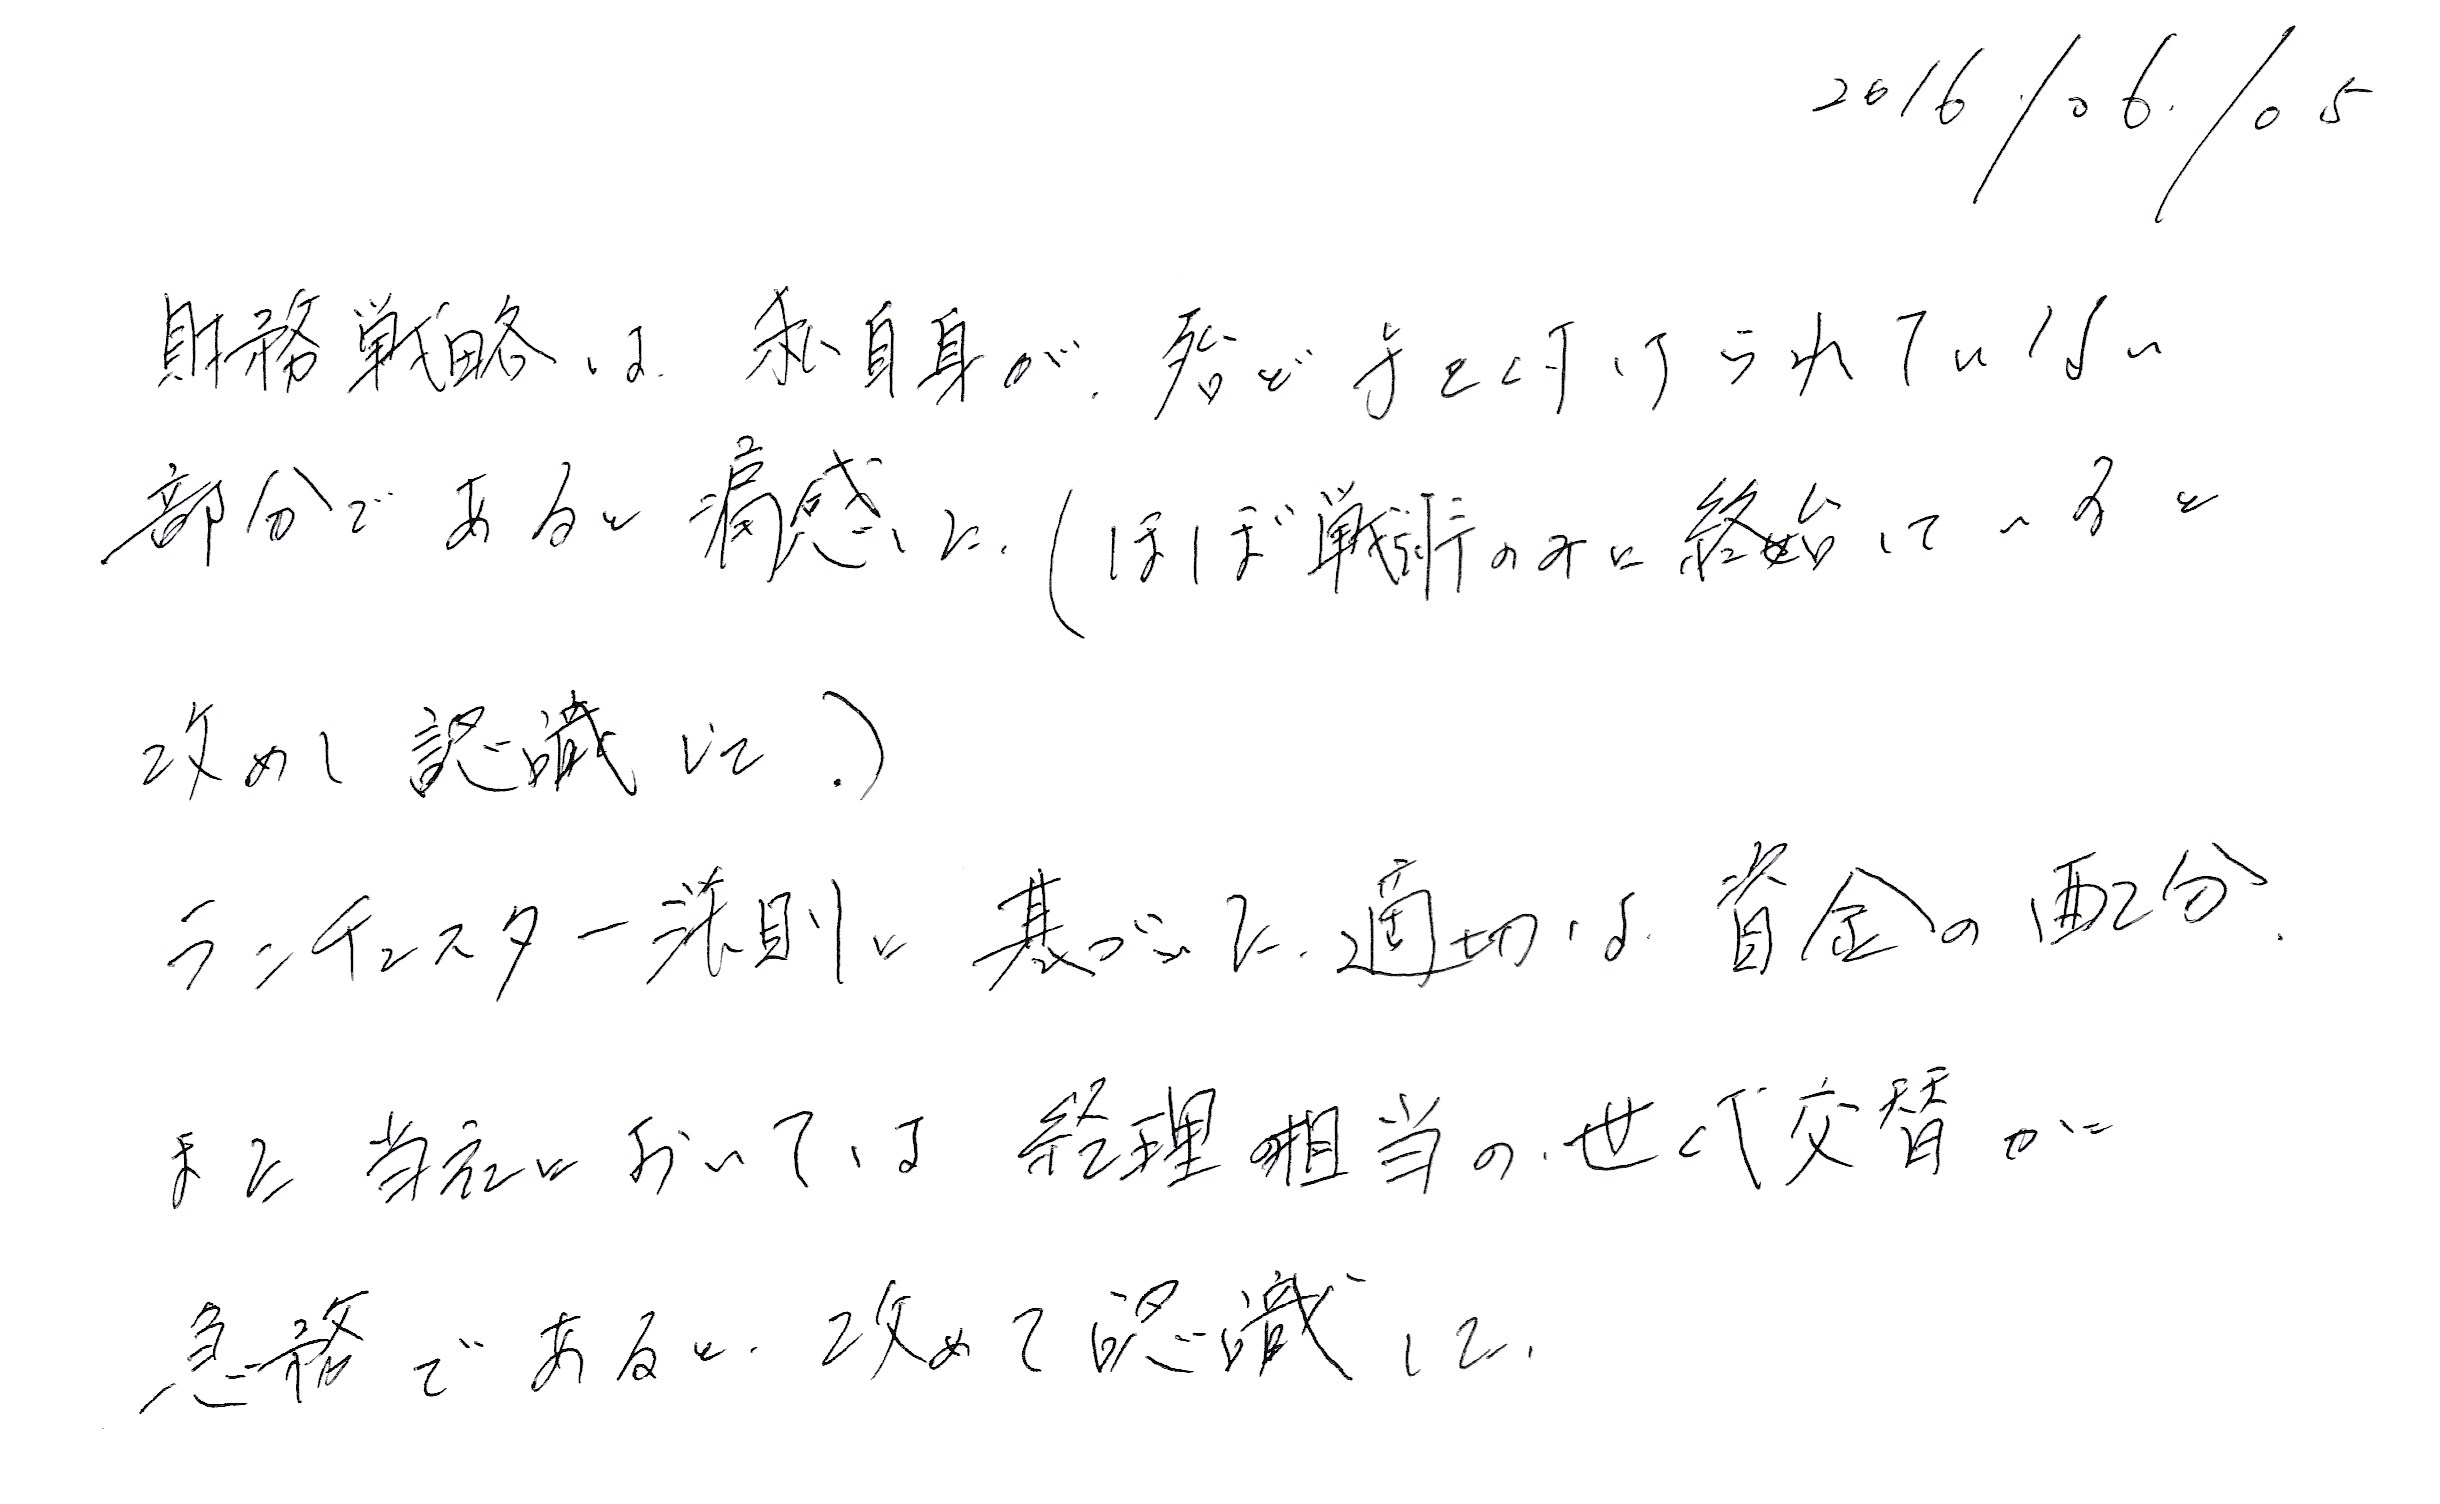 2016/06/05
財務戦略は、私自身が、殆ど手を付けられていない
部分であると痛感した。(ほぼ戦術のみに終始していると
改めて認識した。)
ランチェスター法則に基づいた、適切な資金の配分、
また当社においては経理担当の、世代交替が
急務であると、改めて認識した。